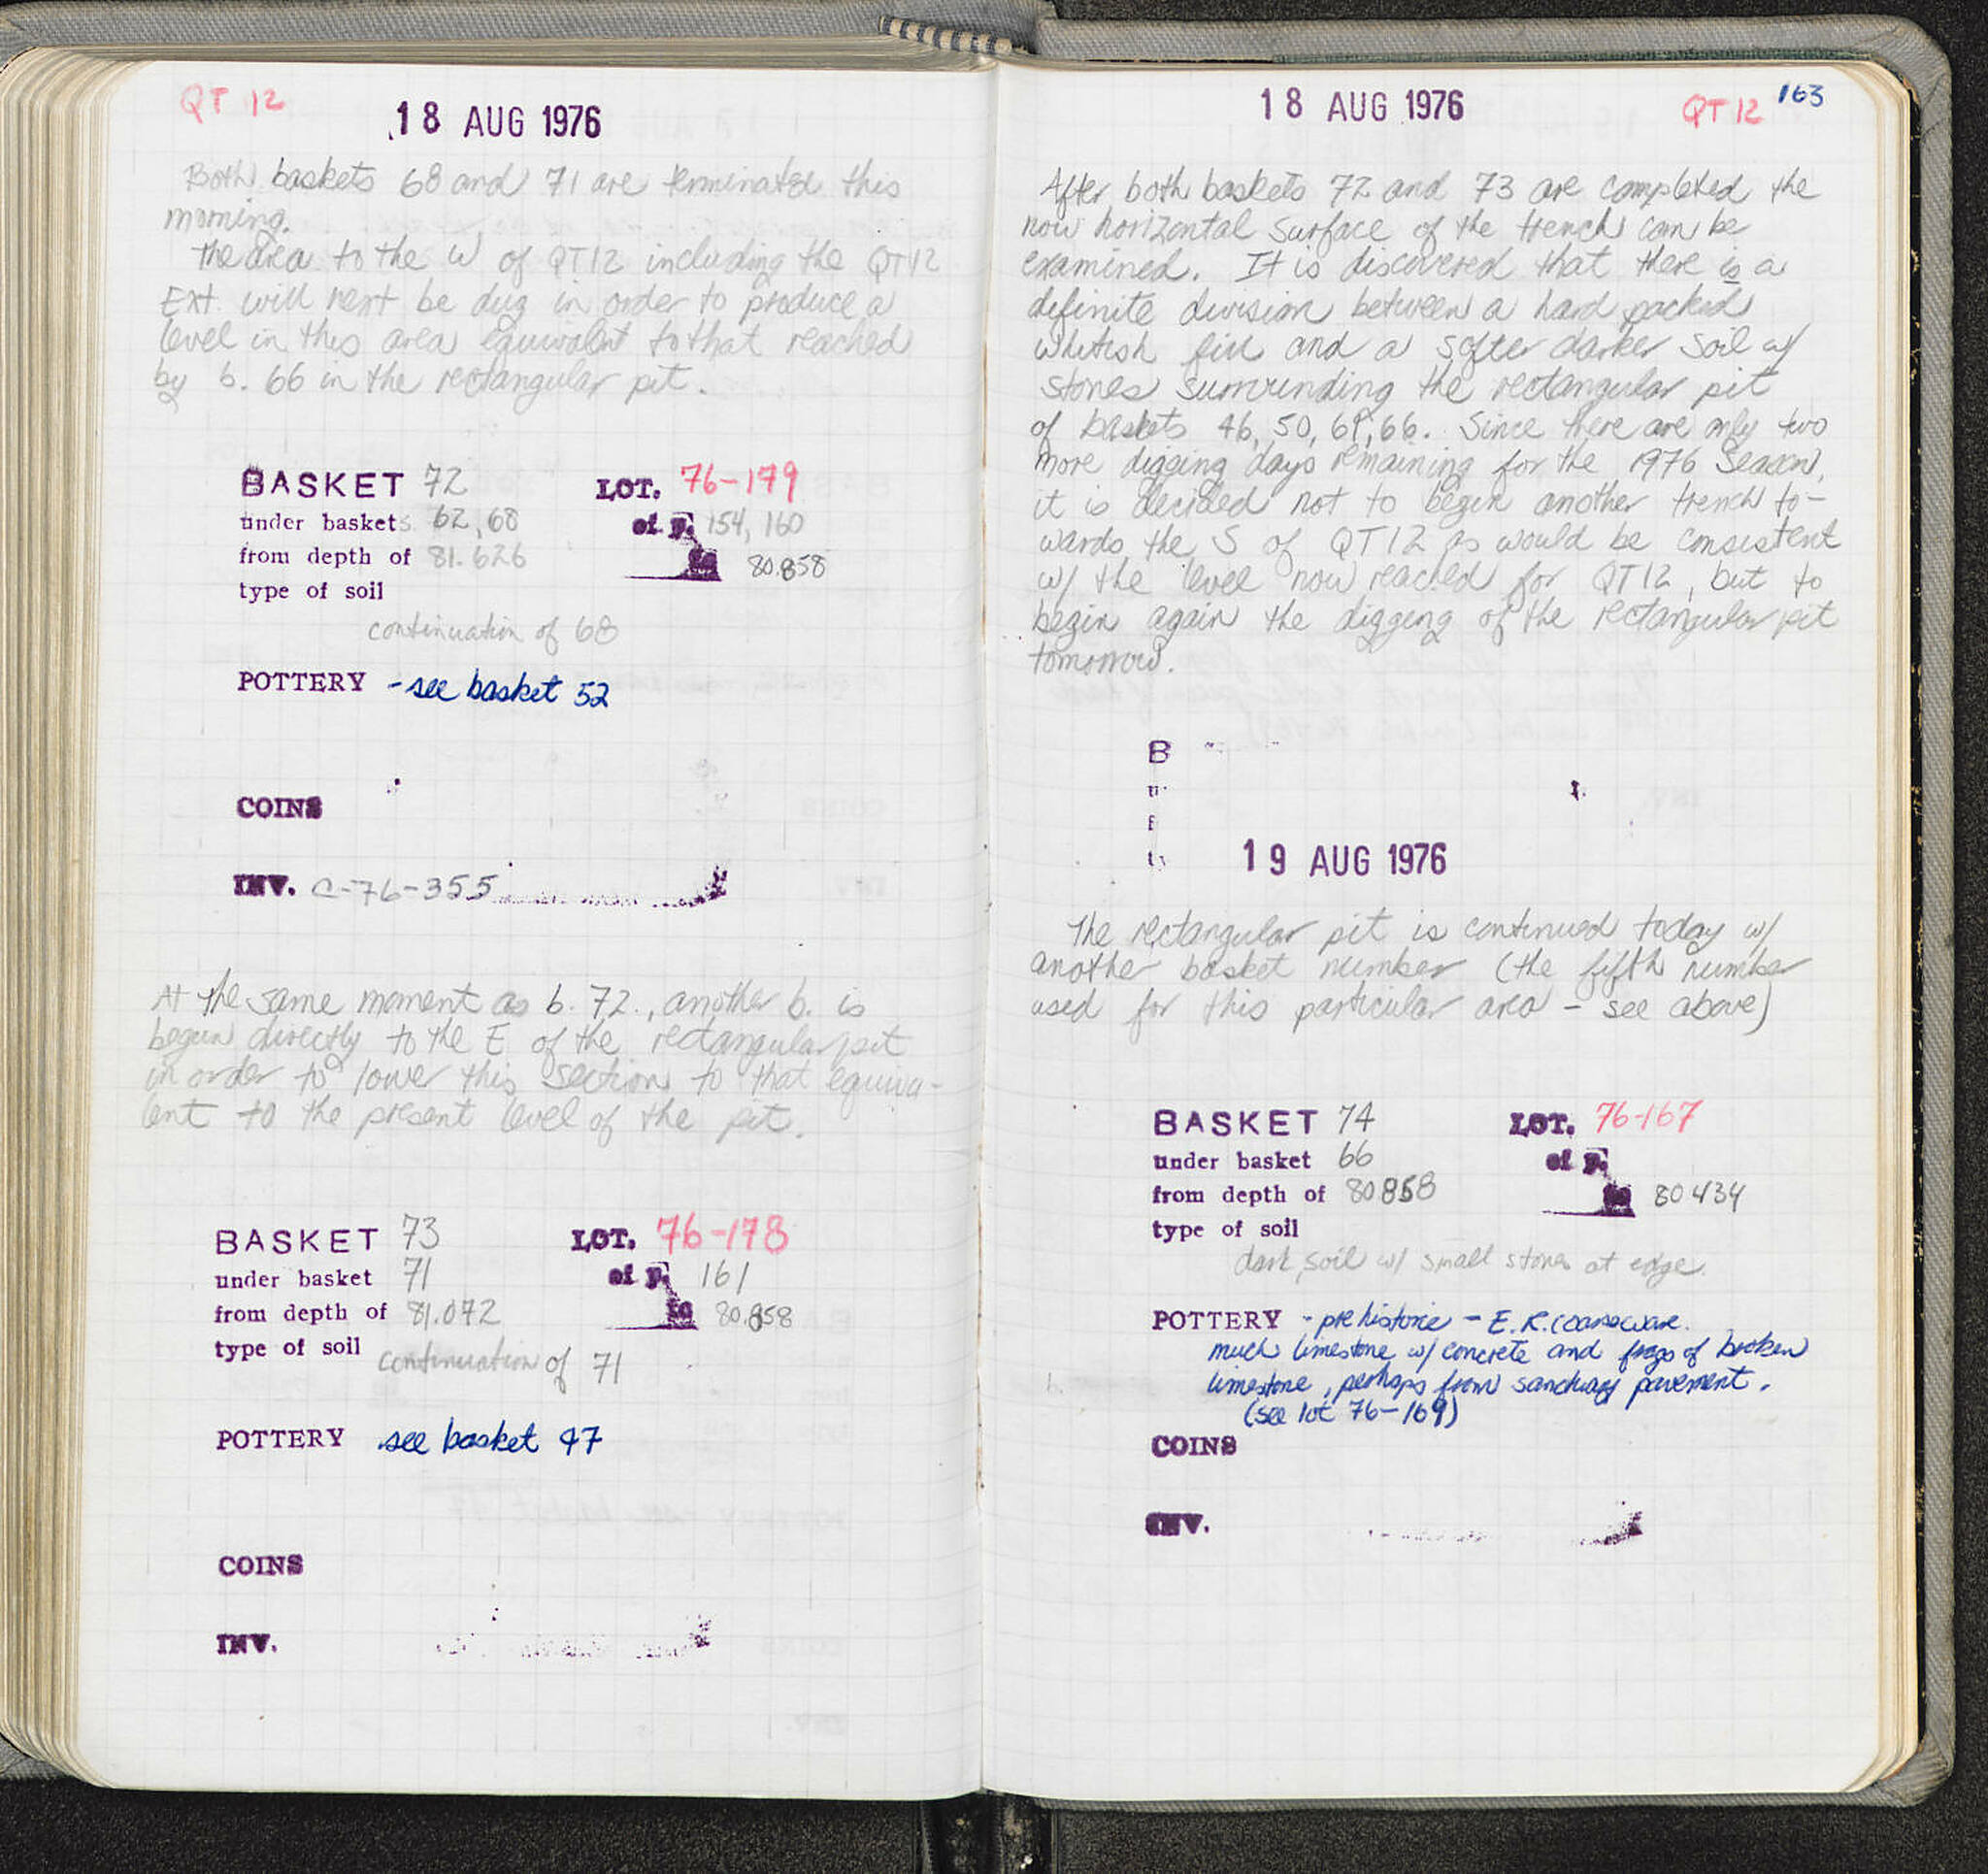 QT 12
18 AUG 1976
Both baskets 68 and 71 are terminated this
morning.
The area to the W of QT12 including the QT12
Ext. will next be dug in order to produce a
level in this area equivalent to that reached
by b. 66 in the rectangular pit.
BASKET 72 LOT. 76-179
under baskets 62, 68 of p. 154, 160
from depth of 81.626 to 80.858
type of soil
continuation of 68
POTTERY - see basket 52
COINS
INV. C-76-355
At the same moment as b. 72., another b. is
begun directly to the E of the rectangular pit
in order to lower this section to that equiva-
lent to the present level of the pit.
BASKET 73 LOT. 76-178
under basket 71 of p. 161
from depth of 81.072 to 80.858
type of soil
continuation of 71
POTTERY see basket 47
COINS
INV.
18 AUG 1976
QT 12 163
After both baskets 72 and 73 are completed the
now horizontal surface of the trench can be
examined. It is discovered that there is a
definite division between a hard packed
whitish fill and a softer darker soil w/
stones surrounding the rectangular pit
of baskets 46, 50, 61, 66. Since there are only two
more digging days remaining for the 1976 Season,
it is decided not to begin another trench to-
wards the S of QT12 as would be consistent
w/ the level now reached for QT12, but to
begin again the digging of the rectangular pit
tomorrow.
B
19 AUG 1976
The rectangular pit is continued today w/
another basket number (the fifth number
used for this particular area - see above)
BASKET 74 LOT. 76-167
under basket 66 of p.
from depth of 80858 to 80434
type of soil
dark soil w/ small stones at edge.
POTTERY - prehistoric - E.R. coarseware.
much limestone w/ concrete and frags of broken
limestone, perhaps from sanctuary pavement.
(see lot 76-169)
COINS
INV.